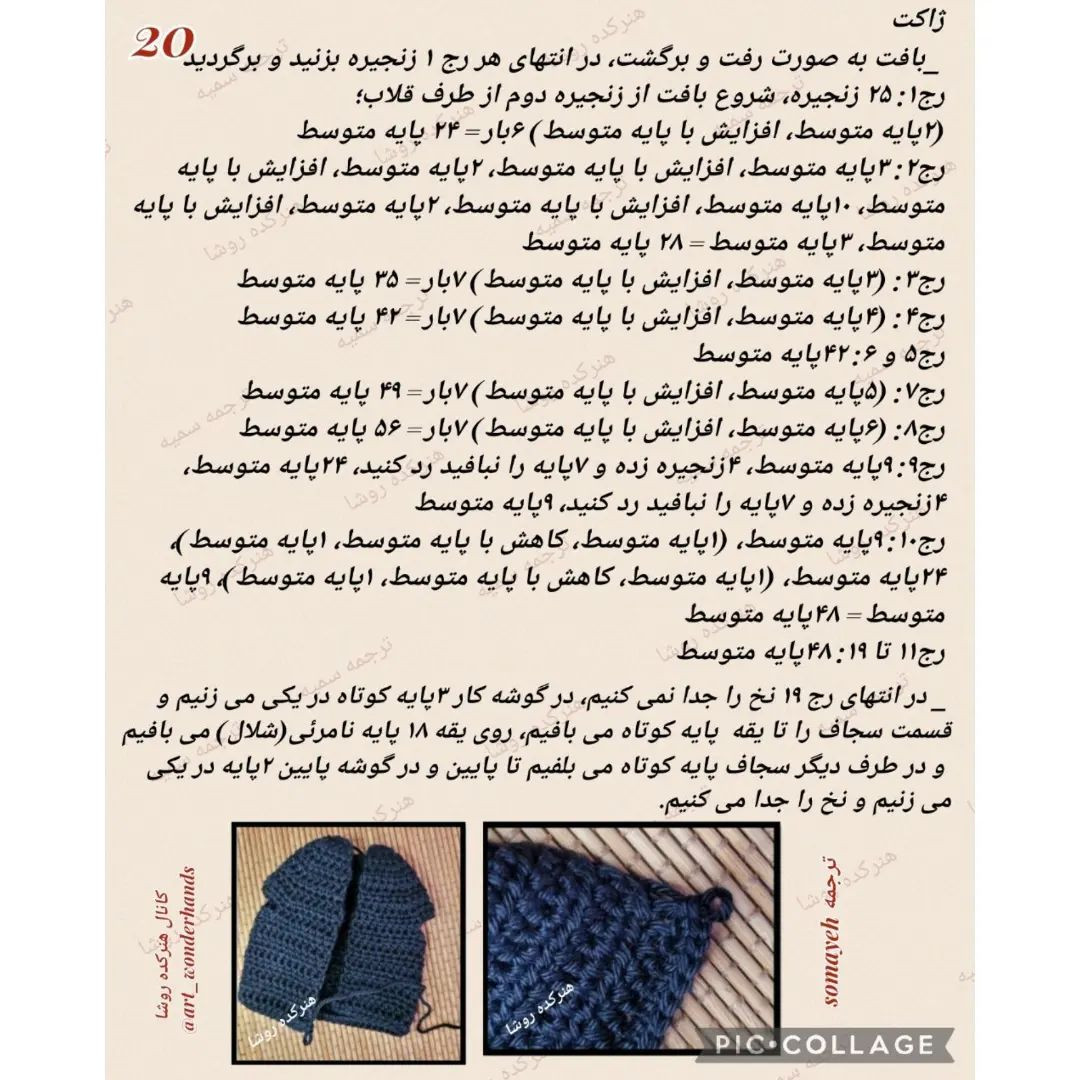 20
ژاکت
_بافت به صورت رفت و برگشت، در انتهای هر رج ۱ زنجیره بزنید و برگردید
رج۱: ۲۵ زنجیره، شروع بافت از زنجیره دوم از طرف قلاب؛
(۲پایه متوسط، افزایش با پایه متوسط)۶بار=۲۴ پایه متوسط
رج۲: ۳پایه متوسط، افزایش با پایه متوسط، ۲پایه متوسط، افزایش با پایه
متوسط، ۱۰پایه متوسط، افزایش با پایه متوسط، ۲پایه متوسط، افزایش با پایه
متوسط، ۳پایه متوسط=۲۸ پایه متوسط
رج۳: (۳پایه متوسط، افزایش با پایه متوسط)۷بار=۳۵ پایه متوسط
رج۴: (۴پایه متوسط، افزایش با پایه متوسط)۷بار=۴۲ پایه متوسط
رج۵ و ۶: ۴۲پایه متوسط
رج۷: (۵پایه متوسط، افزایش با پایه متوسط)۷بار=۴۹ پایه متوسط
رج۸: (۶پایه متوسط، افزایش با پایه متوسط)۷بار=۵۶ پایه متوسط
رج۹: ۹پایه متوسط، ۴زنجیره زده و ۷پایه را نبافید رد کنید، ۲۴پایه متوسط،
۴زنجیره زده و ۷پایه را نبافید رد کنید، ۹پایه متوسط
رج۱۰: ۹پایه متوسط، (۱پایه متوسط، کاهش با پایه متوسط، ۱پایه متوسط)،
۲۴پایه متوسط، (۱پایه متوسط، کاهش با پایه متوسط، ۱پایه متوسط)، ۹پایه
متوسط=۴۸پایه متوسط
رج۱۱ تا ۱۹: ۴۸پایه متوسط
_ در انتهای رج ۱۹ نخ را جدا نمی کنیم، در گوشه کار ۳پایه کوتاه در یکی می زنیم و
قسمت سجاف را تا یقه پایه کوتاه می بافیم، روی یقه ۱۸ پایه نامرئی(شلال) می بافیم
و در طرف دیگر سجاف پایه کوتاه می بلفیم تا پایین و در گوشه پایین ۲پایه در یکی
می زنیم و نخ را جدا می کنیم.
کانال هنرکده روشا
@art_wonderhands
هنرکده روشا
هنرکده روشا
ترجمه somayeh
PIC•COLLAGE